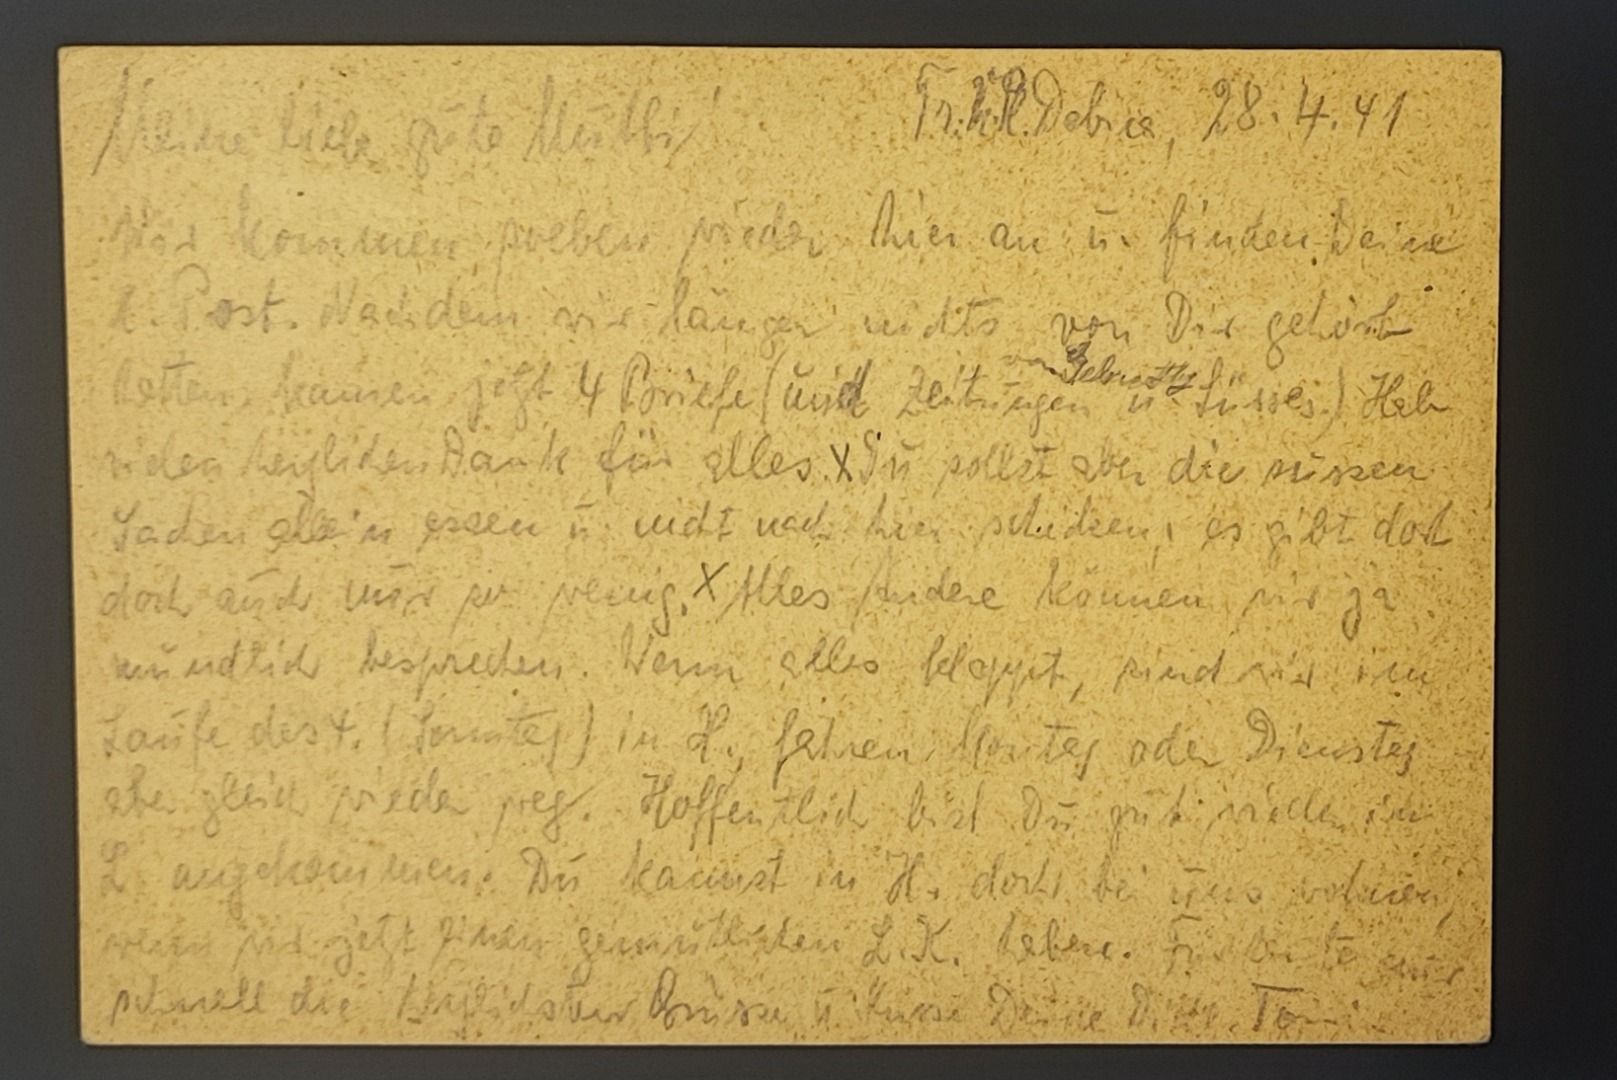 Meine liebe gute Mutti! Debica, 28.4.41
Wir kommen soeben wieder hier an u. finden Deine
l. Post. Nachdem wir länger nichts von Dir gehört
hatten, kamen jetzt 4 Briefe (und Zeitungen u. Süsses.) Hab
vielen herzlichen Dank für alles. X Du sollst aber die süssen
Sachen allein essen u. nicht nach hier schicken, es gibt dort
doch auch nur so wenig. X Alles Andere können wir ja
mündlich besprechen. Wenn alles klappt, sind wir im
Laufe des 4. (Sonntag) in H., fahren Montag oder Dienstag
aber gleich wieder weg. Hoffentlich bist Du gut wieder in
L. angekommen. Du kannst in H. doch bei uns wohnen,
wenn wir jetzt einen gemütlichen L.K. haben. Für heute nur
schnell die herzlichsten Grüsse u. Küsse Deine